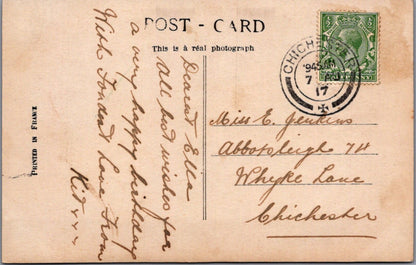 POST - CARD
This is a real photograph
PRINTED IN FRANCE
Dearest Ella
All best wishes for
a very happy birthday
With Fondest Love From
Kit
CHICHESTER
7
17
Miss E. Jenkins
Abbotsleigh 74
Whyke Lane
Chichester